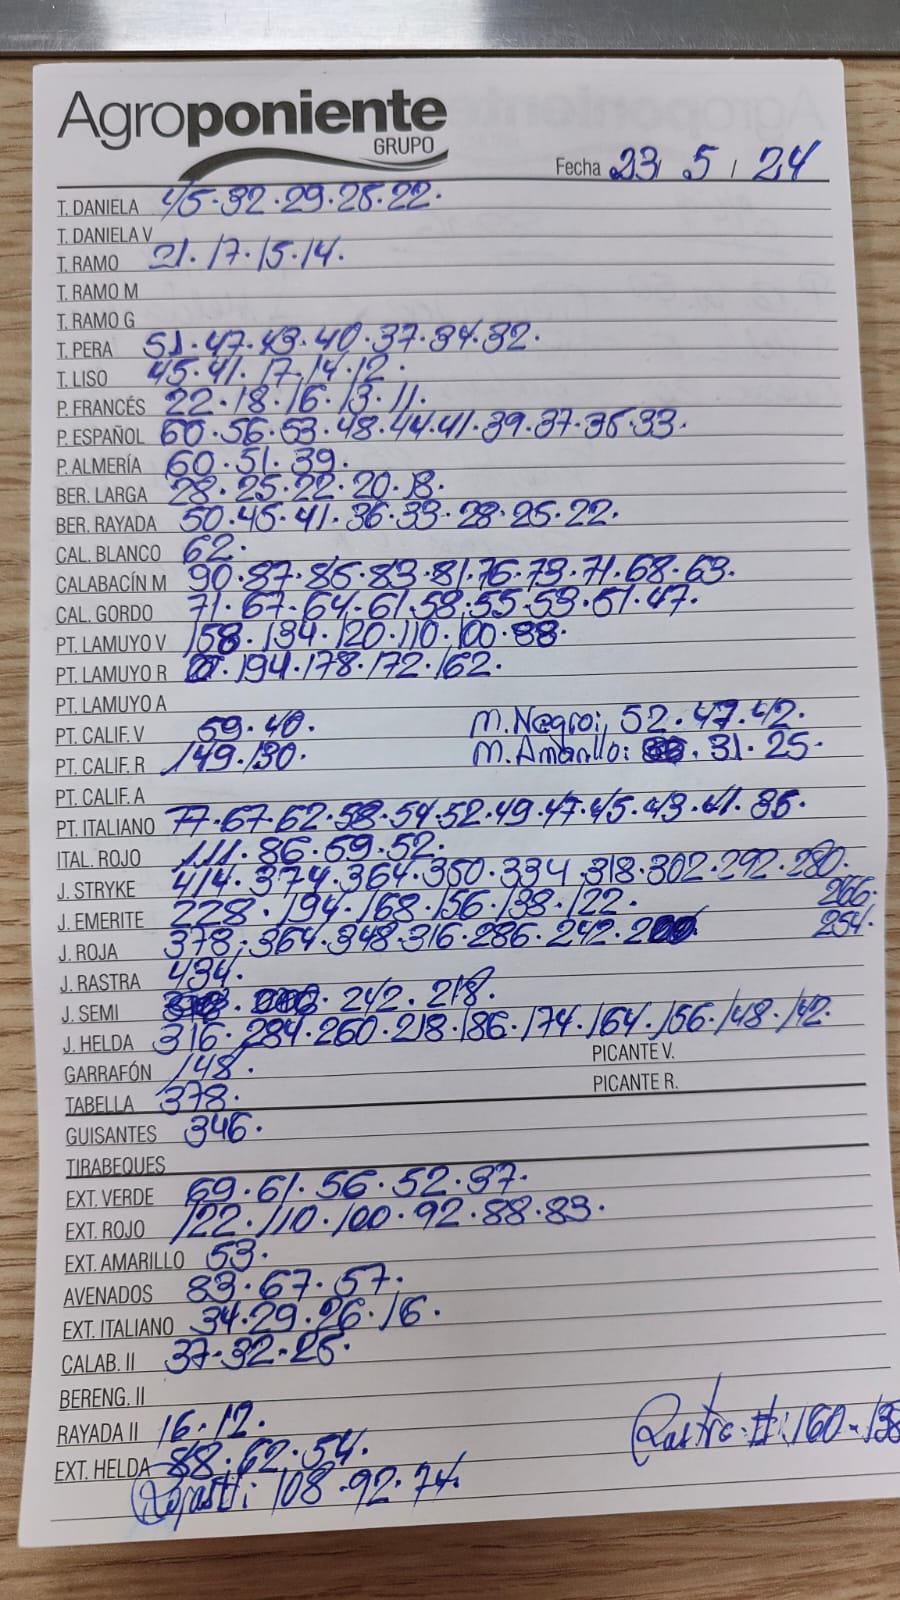 Agroponiente
GRUPO
Fecha 23 / 5 / 24
T. DANIELA 45·32·29·25·22·
T. DANIELA V
T. RAMO 21·17·15·14·
T. RAMO M
T. RAMO G
T. PERA 51·47·43·40·37·34·32·
T. LISO 45·41·17·14·12·
P. FRANCÉS 22·18·16·13·11·
P. ESPAÑOL 60·56·53·48·44·41·39·37·35·33·
P. ALMERÍA 60·51·39·
BER. LARGA 28·25·22·20·18·
BER. RAYADA 50·45·41·36·33·28·25·22·
CAL. BLANCO 62·
CALABACÍN M 90·87·85·83·81·76·73·71·68·63·
CAL. GORDO 71·67·64·61·58·55·53·51·47·
PT. LAMUYO V 158·134·120·110·100·88·
PT. LAMUYO R 194·178·172·162·
PT. LAMUYO A
PT. CALIF. V 59·40· M. Negro: 52·47·42·
PT. CALIF. R 149·130· M. Amarillo: 31·25·
PT. CALIF. A
PT. ITALIANO 77·67·62·58·54·52·49·47·45·43·41·35·
ITAL. ROJO 111·86·59·52·
J. STRYKE 414·374·364·350·334·318·302·292·280·
J. EMERITE 228·194·168·156·138·122· 266·
J. ROJA 378·364·348·316·286·242· 254·
J. RASTRA 434·
J. SEMI 242·218·
J. HELDA 316·284·260·218·186·174·164·156·148·142·
GARRAFÓN 148· PICANTE V.
TABELLA 378· PICANTE R.
GUISANTES 346·
TIRABEQUES
EXT. VERDE 69·61·56·52·37·
EXT. ROJO 122·110·100·92·88·83·
EXT. AMARILLO 53·
AVENADOS 83·67·57·
EXT. ITALIANO 34·29·26·16·
CALAB. II 37·32·25·
BERENG. II
RAYADA II 16·12·
EXT. HELDA 88·62·54· Rastra II: 160·138
108·92·74·